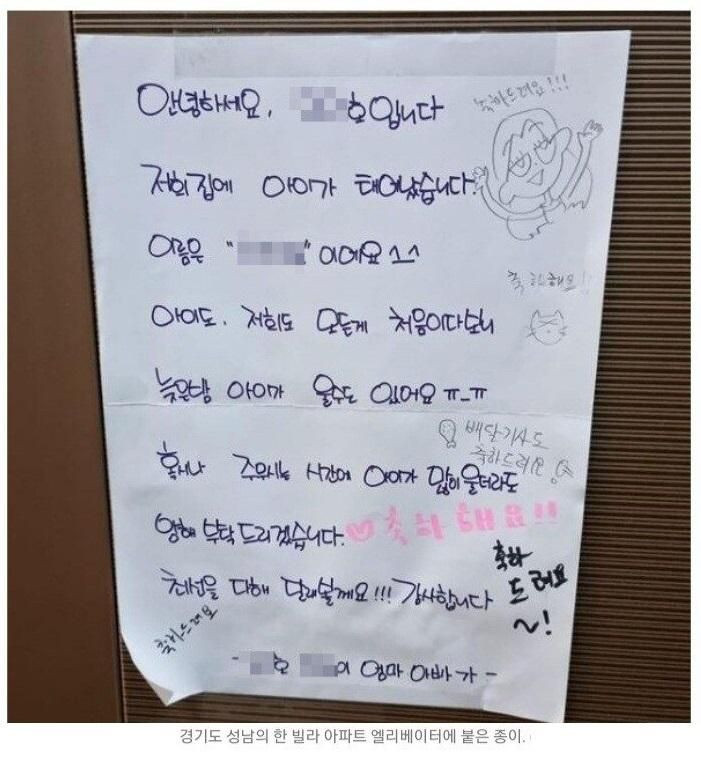 안녕하세요. 호입니다
축하드려요!!!
저희집에 아이가 태어났습니다.
이름은 " " 이에요^^
축하해요!!
아이도. 저희도 모든게 처음이다보니
늦은밤 아이가 울수도 있어요 ㅠ_ㅠ
배달기사도
축하드려요
혹시나 주무시는 시간에 아이가 많이 울더라도
양해 부탁드리겠습니다.
♡축하해요!!
최선을 다해 달래볼게요!!! 감사합니다
축하
드려요
~!
축하드려요
- 호 이 엄마 아빠가 -
경기도 성남의 한 빌라 아파트 엘리베이터에 붙은 종이.